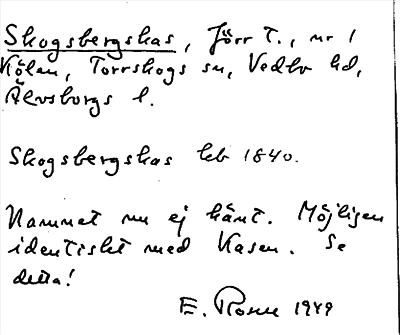 Skogsbergskas, förr t., nr 1
Kölen, Torrskogs sn, Vedbo hd,
Älvsborgs l.
Skogsbergskas hb 1840.
Namnet nu ej känt. Möjligen
identiskt med Kasen. Se
detta!
E. Rosell 1949